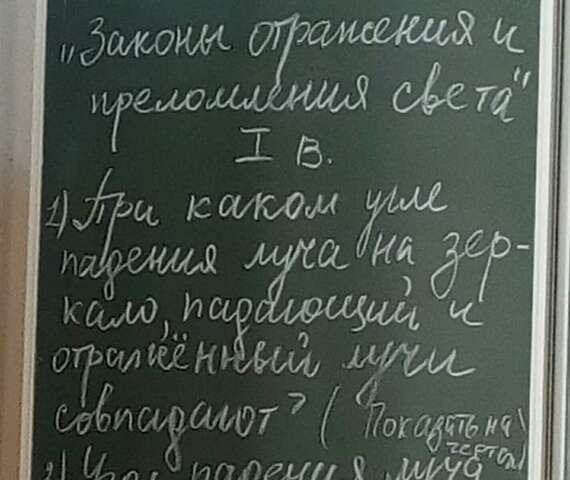 „Законы отражения и
преломления света"
I в.
1) При каком угле
падения луча на зер-
кало, падающий и
отражённый лучи
совпадают? (Показать на
чертеже)
2) Угол падения луча